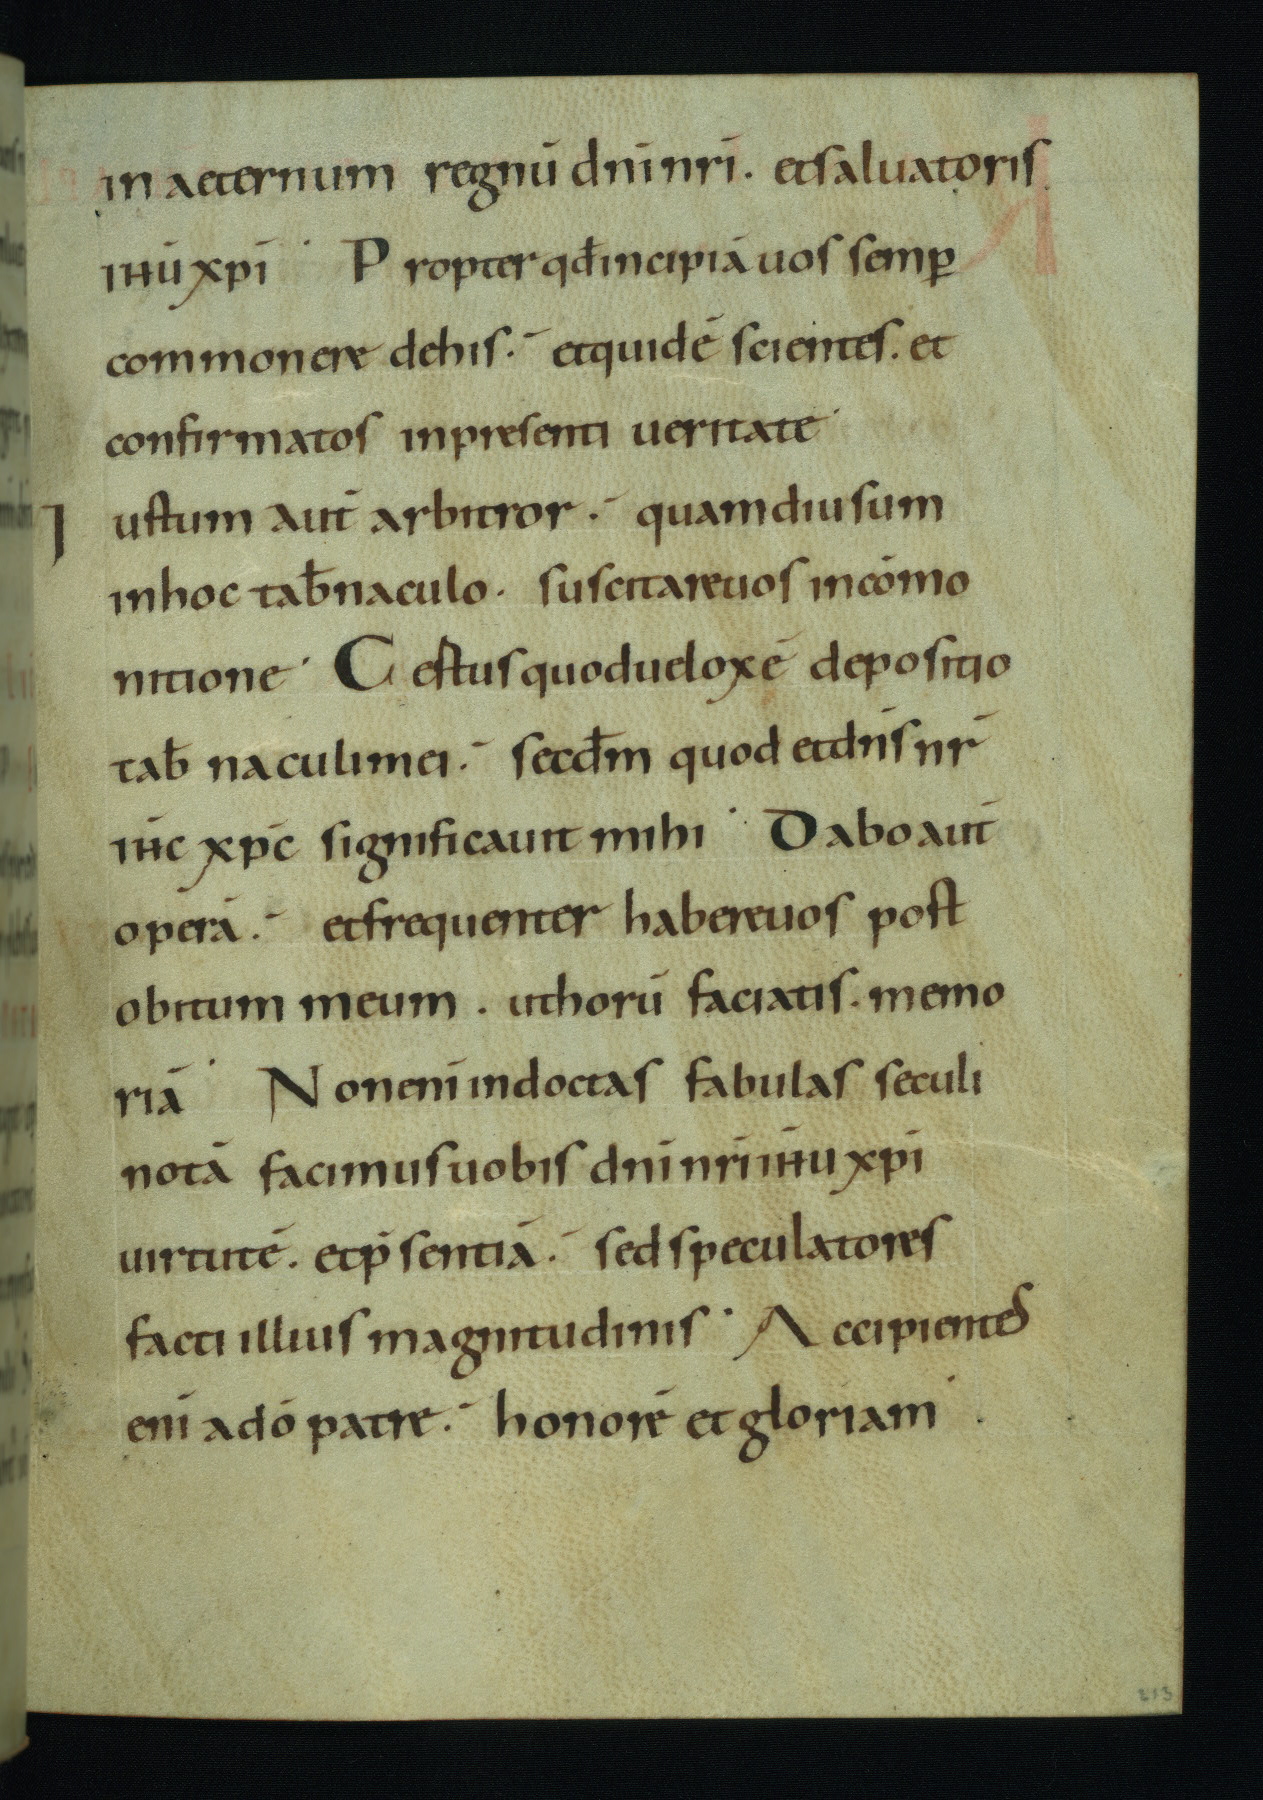 in aeternum regnū dn̄i nr̄i. et saluatoris
ih̄ū xp̄i · Propter qđ incipiā uos semꝑ
commonere de his:- et quidē scientes. et
confirmatos in presenti ueritate·
Iustum aut̄ arbitror:- quamdiu sum
in hoc tab̄naculo. suscitare uos in cōmo
nitione· Certus quod uelox ē depositio
tab̄naculi mei:- sec̄dm quod et dn̄s nr̄
ih̄c xp̄c significauit mihi· Dabo aut̄
operā:- et frequenter habere uos post
obitum meum. ut horū faciatis. memo
riā· Non eni̅ indoctas fabulas seculi
notā facimus uobis dn̄i nr̄i ih̄u xp̄i
uirtutē. et p̄sentiā:- sed speculatores
facti illius magnitudinis· Accipientes
eni̅ a dō patre:- honorē et gloriam·
213